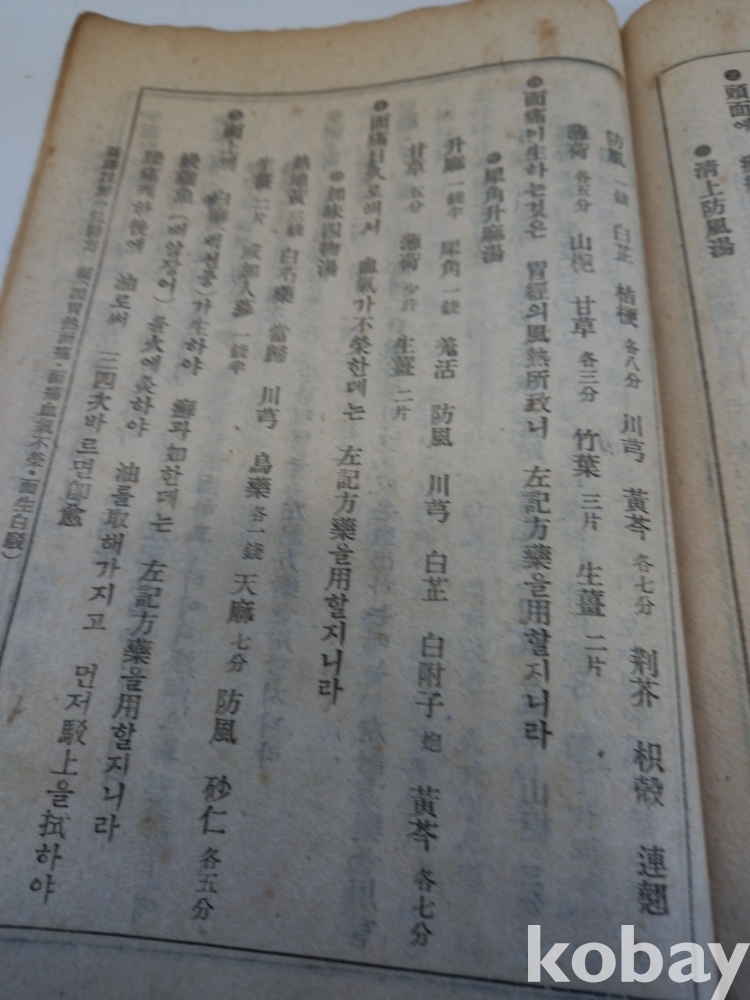 頭面에
淸上防風湯
防風 一錢 白芷 桔梗 各八分 川芎 黃芩 各七分 荆芥 枳殼 連翹
薄荷 各五分 山梔 甘草 各三分 竹葉 三片 生薑 二片
面痛이生하는것은 胃經의風熱所致니 左記方藥을用할지니라
犀角升麻湯
升麻 一錢半 犀角 一錢 羗活 防風 川芎 白芷 白附子 炮 黃芩 各七分
甘草 五分 薄荷 少許 生薑 二片
面痛日久로해서 血氣가不榮한데는 左記方藥을用할지니라
加味四物湯
熟地黃 一錢 白芍藥 當歸 川芎 烏藥 各一錢 天麻 七分 防風 砂仁 各五分
生薑 二片 或加人蔘 一錢半
面上에 白 가生하야 癬과如한데는 左記方藥을用할지니라
(배암장어)를火에炙하야 油를取해가지고 먼저駁上을拭하야
한後에 油로써 三四次바르면卽愈
面 胃熱 ・面痛血氣不榮・面生白駁)
kobay